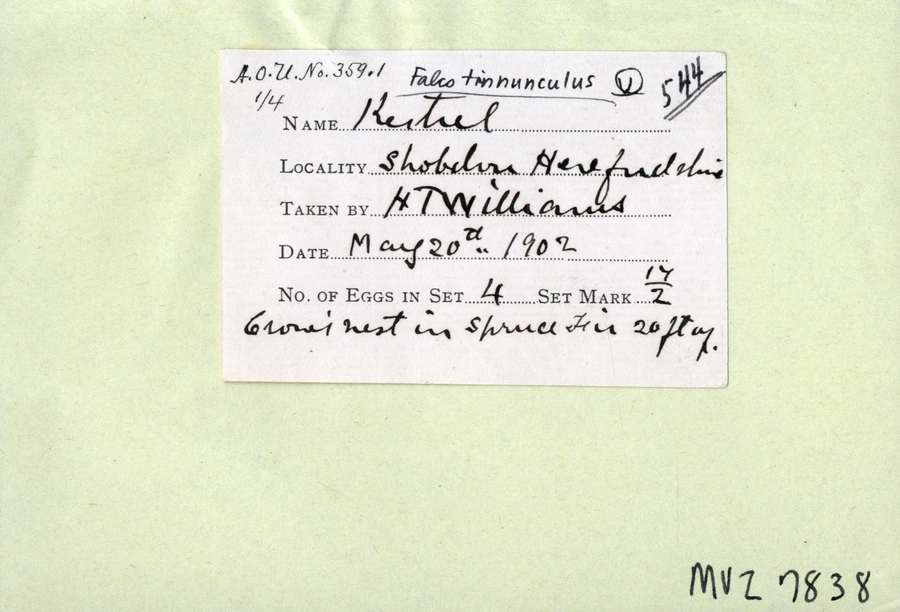 A.O.U. No. 359.1 Falco tinnunculus 544
1/4
NAME Kestrel
LOCALITY Shobdon Herefordshire
TAKEN BY HTWilliams
DATE May 20th 1902
NO. OF EGGS IN SET 4 SET MARK 17/2
Crow's nest in Spruce Fir 20ft up.
MVZ 7838